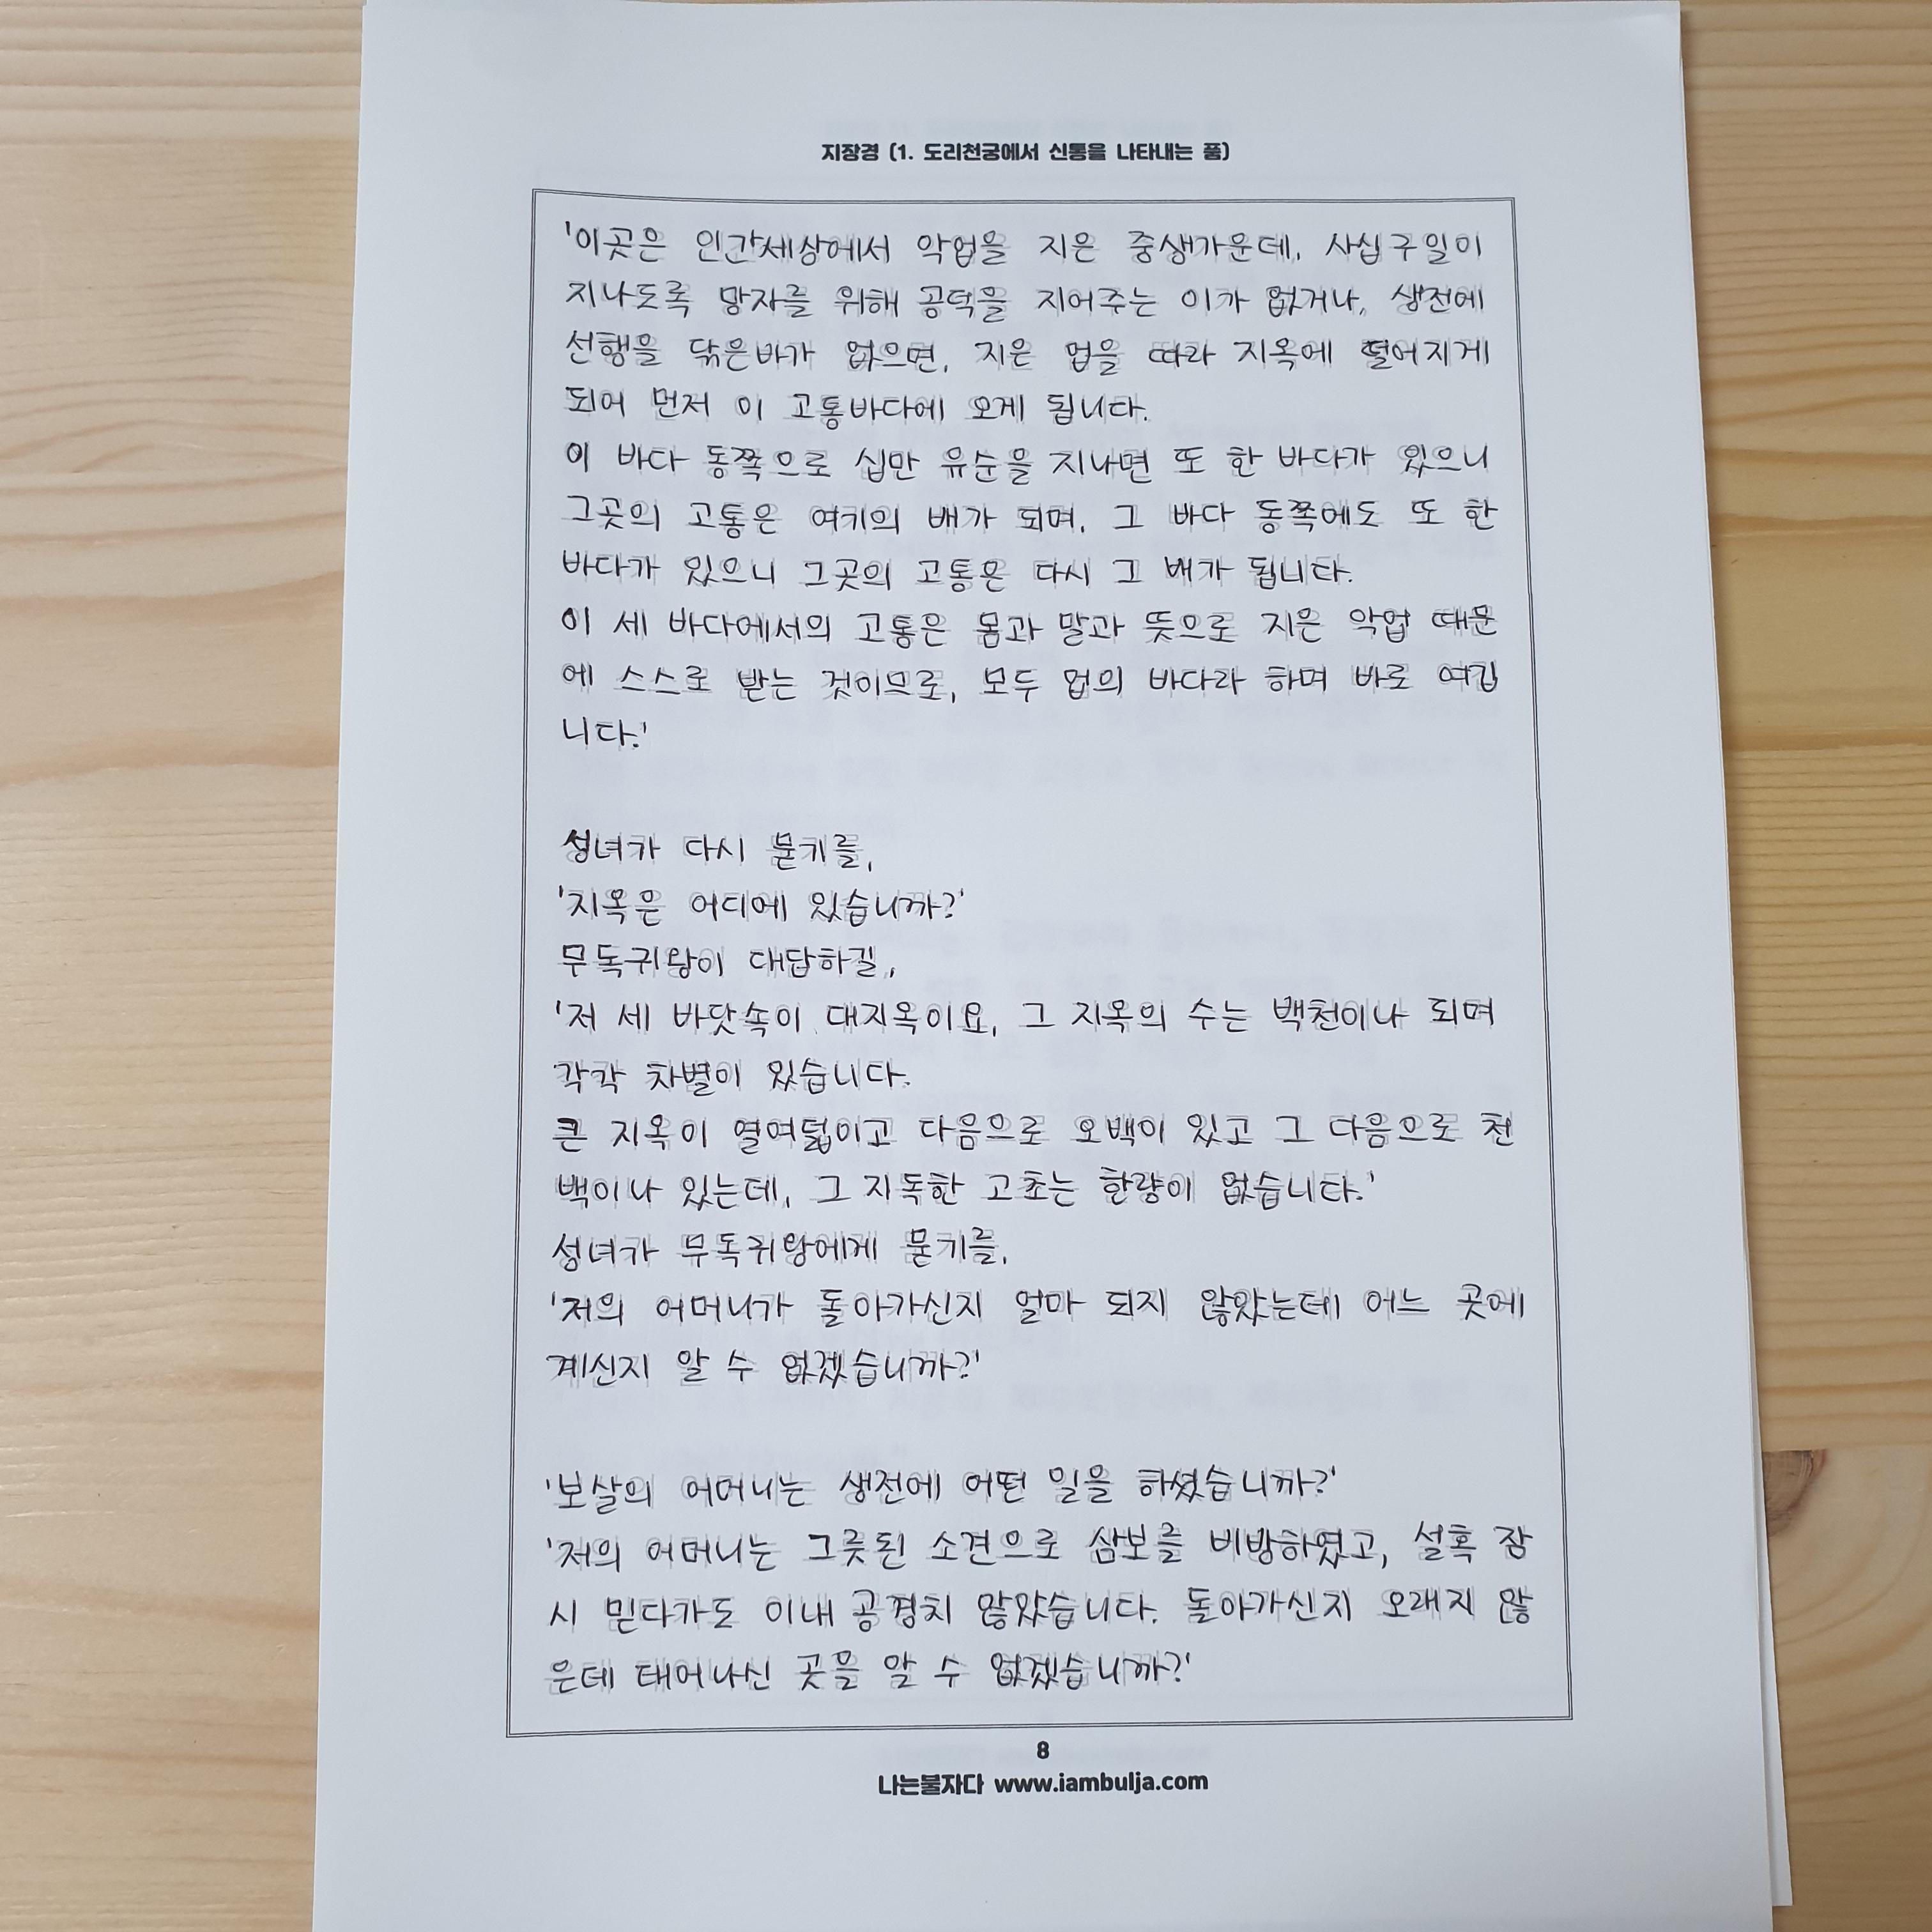 지장경 (1. 도리천궁에서 신통을 나타내는 품)
'이곳은 인간세상에서 악업을 지은 중생가운데, 사십구일이
지나도록 망자를 위해 공덕을 지어주는 이가 없거나, 생전에
선행을 닦은바가 없으면, 지은 업을 따라 지옥에 떨어지게
되어 먼저 이 고통바다에 오게 됩니다.
이 바다 동쪽으로 십만 유순을 지나면 또 한 바다가 있으니
그곳의 고통은 여기의 배가 되며, 그 바다 동쪽에도 또 한
바다가 있으니 그곳의 고통은 다시 그 배가 됩니다.
이 세 바다에서의 고통은 몸과 말과 뜻으로 지은 악업 때문
에 스스로 받는 것이므로, 모두 업의 바다라 하며 바로 여깁
니다.'
성녀가 다시 묻기를,
'지옥은 어디에 있습니까?'
무독귀왕이 대답하길,
'저 세 바닷속이 대지옥이요, 그 지옥의 수는 백천이나 되며
각각 차별이 있습니다.
큰 지옥이 열여덟이고 다음으로 오백이 있고 그 다음으로 천
백이나 있는데, 그 지독한 고초는 한량이 없습니다.'
성녀가 무독귀왕에게 묻기를,
'저의 어머니가 돌아가신지 얼마 되지 않았는데 어느 곳에
계신지 알 수 없겠습니까?'
'보살의 어머니는 생전에 어떤 일을 하셨습니까?'
'저의 어머니는 그릇된 소견으로 삼보를 비방하였고, 설혹 잠
시 믿다가도 이내 공경치 않았습니다. 돌아가신지 오래지 않
은데 태어나신 곳을 알 수 없겠습니까?'
8
나는불자다 www.iambulja.com